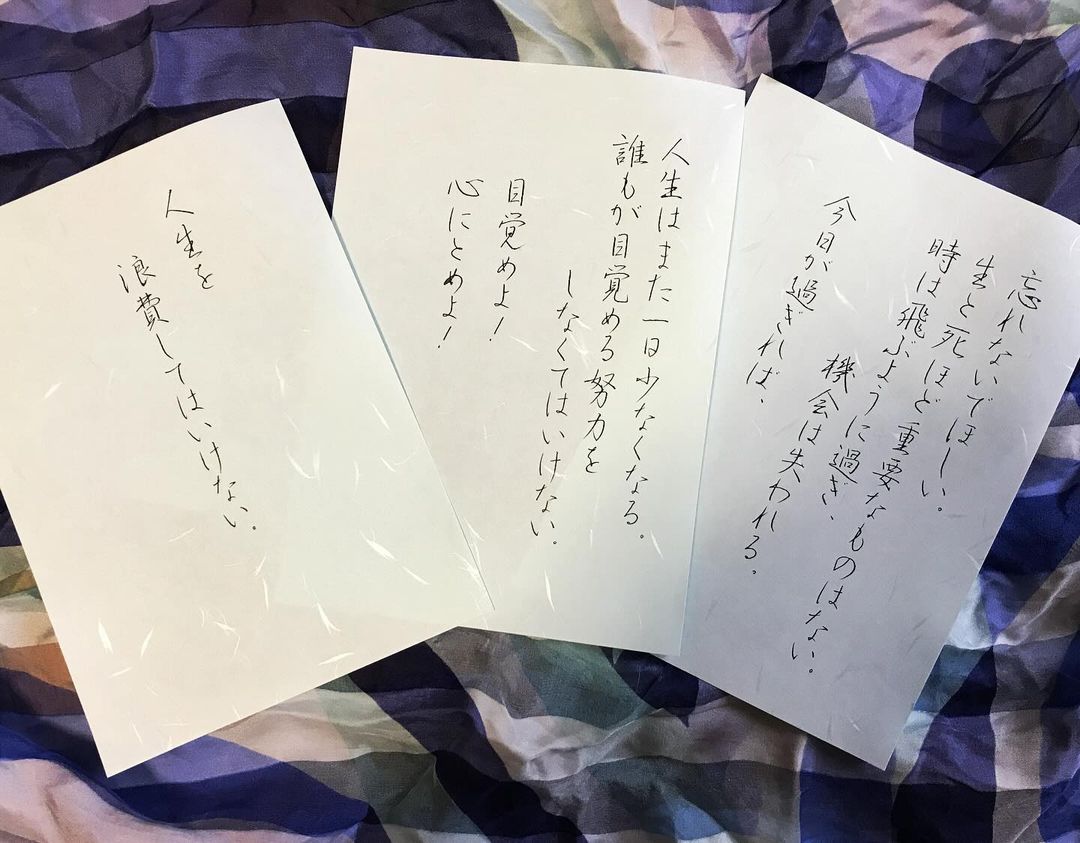 忘れないでほしい。
生と死ほど重要なものはない。
時は飛ぶように過ぎ、
機会は失われる。
今日が過ぎれば、
人生はまた一日少なくなる。
誰もが目覚める努力を
しなくてはいけない。
目覚めよ！
心にとめよ！
人生を
浪費してはいけない。